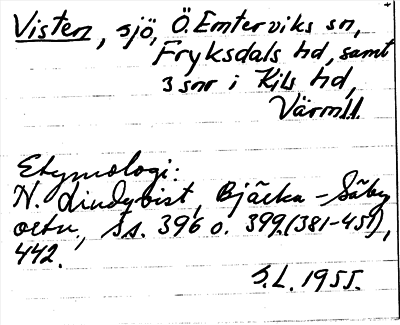 Visten, sjö, Ö. Emterviks sn,
Fryksdals hd, samt
3 snr i Kils hd,
Värml.
Etymologi:
N. Lindqvist, Bjärka-Säby
ortn., ss. 396 o. 399. (381-451),
442.
S.L. 1955.